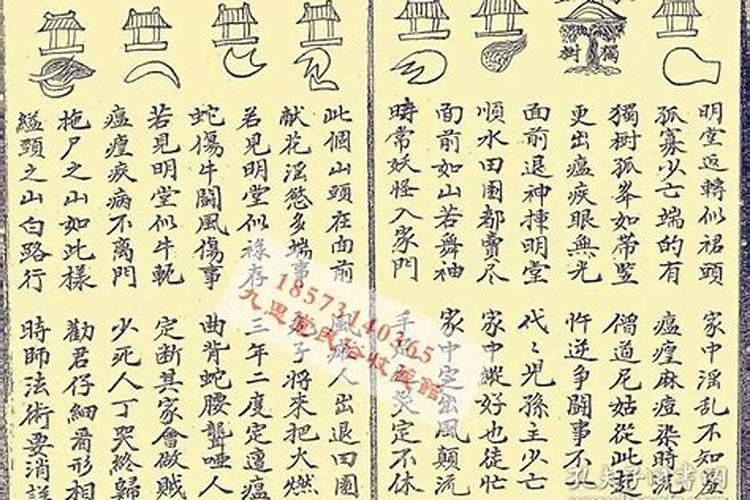 獨樹
明堂返轉似裙頭
家中淫乱不知羞
孤寡少亡端的有
瘟瘽麻痘染時流
獨樹孤峯如帶竖
僧道尼姑從此起
更出瘟疾眼無光
忤逆争鬪事不
面前退神捶明堂
代々児孫主少亡
順水田園都賣尽
家中縱好也徒忙
面前如山若舞袖
家中定出風顛流
時常妖怪入家門
手足哭定不休
此個山頭在面前
風人出退田園
献花淫慾多端事
子將来把火燃
若見明堂似祿存
三年二度定遭瘟
蛇傷牛鬪風傷事
曲背蛇腰聾啞人
若見明堂似牛軛
定断其家會做贼
瘟瘽疾病不離門
少死人丁哭終歸
拖尸之山如此樣
勸君仔細看形相
縊頭之山白路行
時師法術要消詳
18573140365
九思堂民俗收藏館
孔夫子旧书网